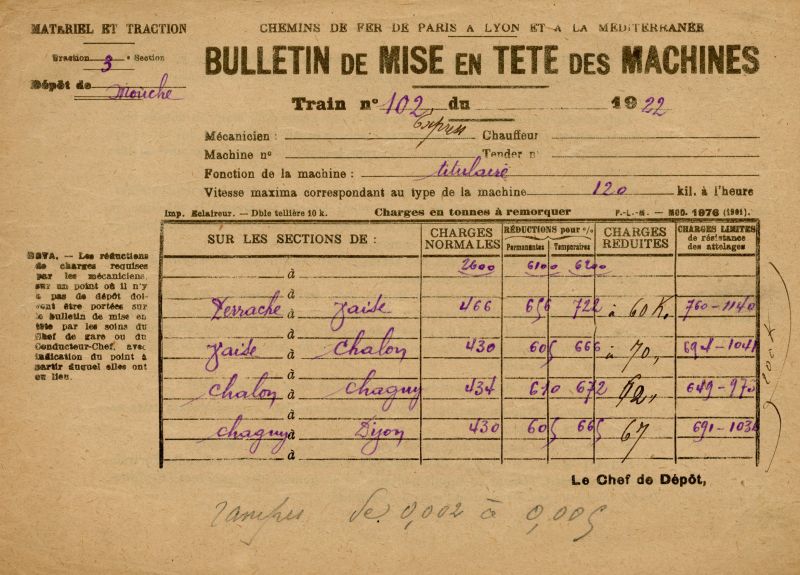 MATERIEL ET TRACTION
Traction 3e Section
Dépôt de Mouche
CHEMINS DE FER DE PARIS A LYON ET A LA MEDITERRANÉE
BULLETIN DE MISE EN TETE DES MACHINES
Train no 102 du 1922
Express
Mécanicien : Chauffeur
Machine no Tender no
Fonction de la machine : titulaire
Vitesse maxima correspondant au type de la machine 120 kil. à l'heure
Imp. Eclaireur. — Dble tellière 10 k. Charges en tonnes à remorquer P.-L.-M. — MOD. 1976 (1901).
NOTA. — Les réductions
de charges requises
par les mécaniciens,
sur un point où il n'y
a pas de dépôt doi-
vent être portées sur
le bulletin de mise en
tête par les soins du
Chef de gare ou du
Conducteur-Chef, avec
indication du point à
partir duquel elles ont
eu lieu.
SUR LES SECTIONS DE : CHARGES NORMALES RÉDUCTIONS pour % Permanentes Temporaires CHARGES REDUITES CHARGES LIMITES de résistance des attelages
à 2600 6100 6200
à
Perrache Vaise 466 656 722 à 60 K. 760-1140
à
Vaise à Chalon 430 605 666 à 70, 694-1041
à
Chalon à Chagny 434 610 672 62, 649-973
à
Chagny à Dijon 430 605 665 67 691-1036
à
Le Chef de Dépôt,
rampes de 0,002 à 0,005